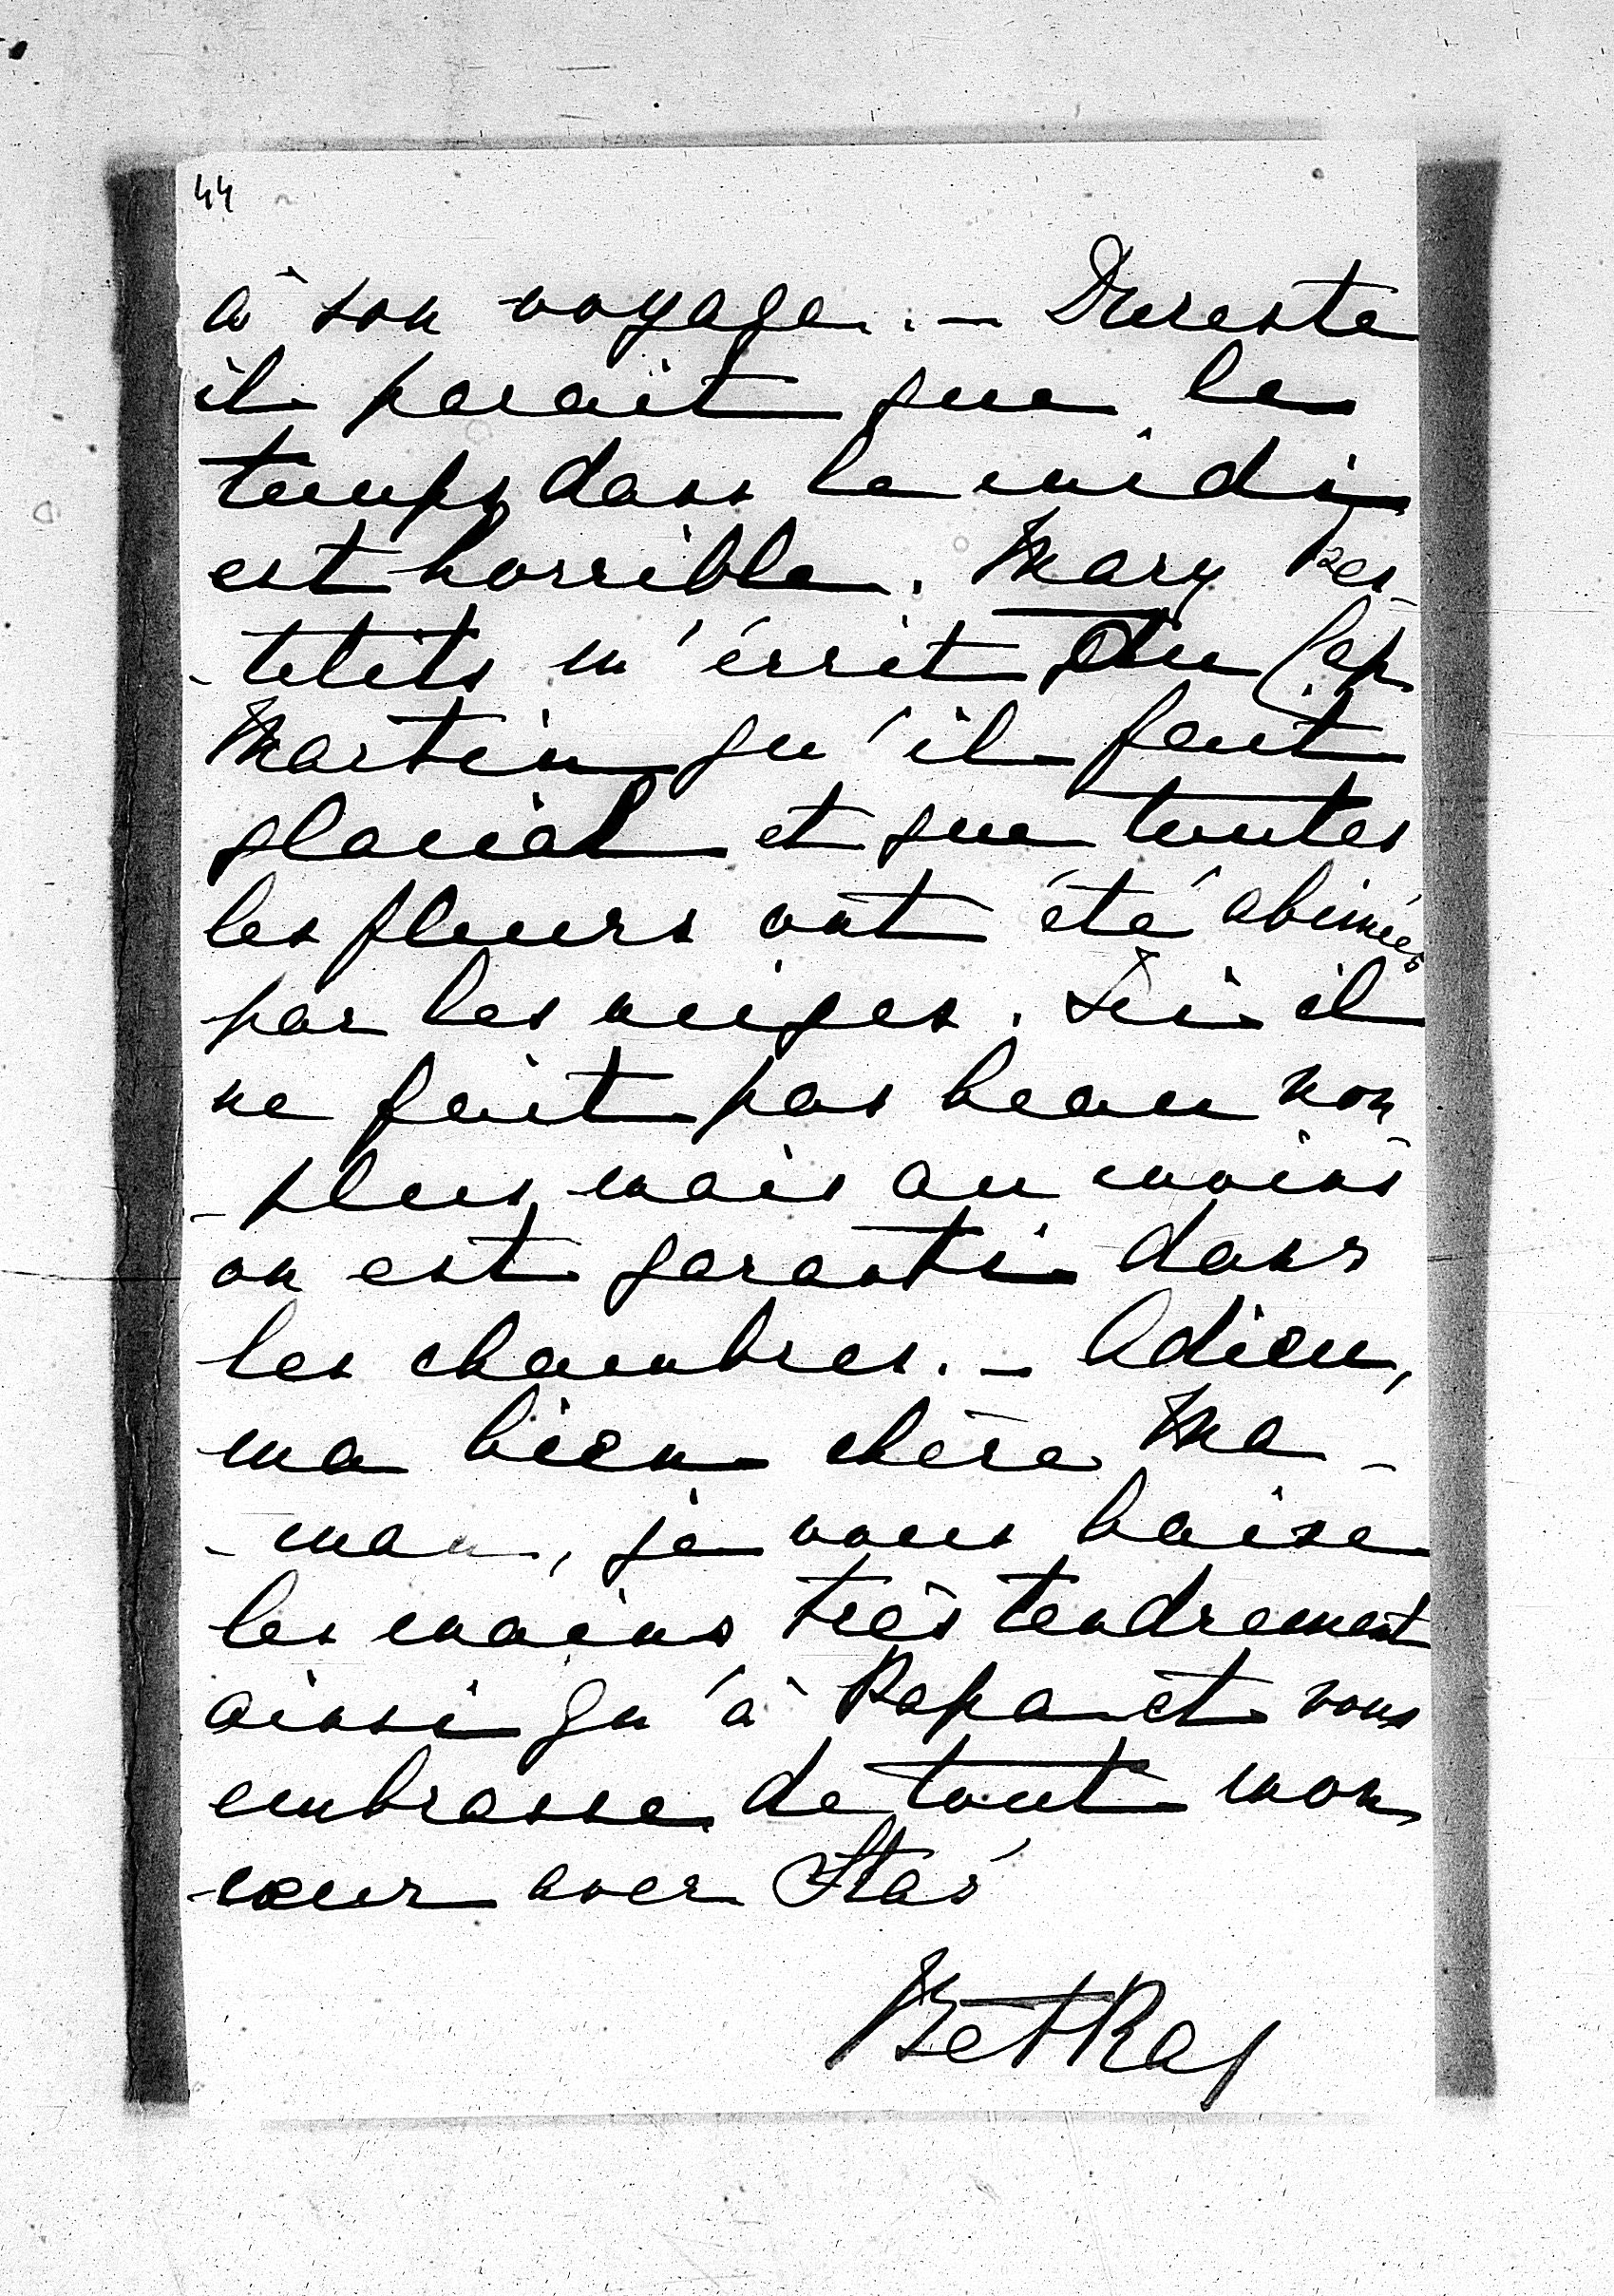 44
à son voyage. — Dureste
il parait que le
temps dans le midi
est horrible. Mary Tes-
-tetits m'écrit du Cap
Martin qu'il fait
glacial et que toutes
les fleurs ont été abimées
par les neiges. Ici il
ne fait pas beau non
-plus, mais au moins
on est garanti dans
les chambres. — Adieu,
ma bien chère Ma-
-man, je vous baise
les mains très tendrement
ainsi qu'à Papa et vous
embrasse de tout mon
cœur avec Stas
BetRaj